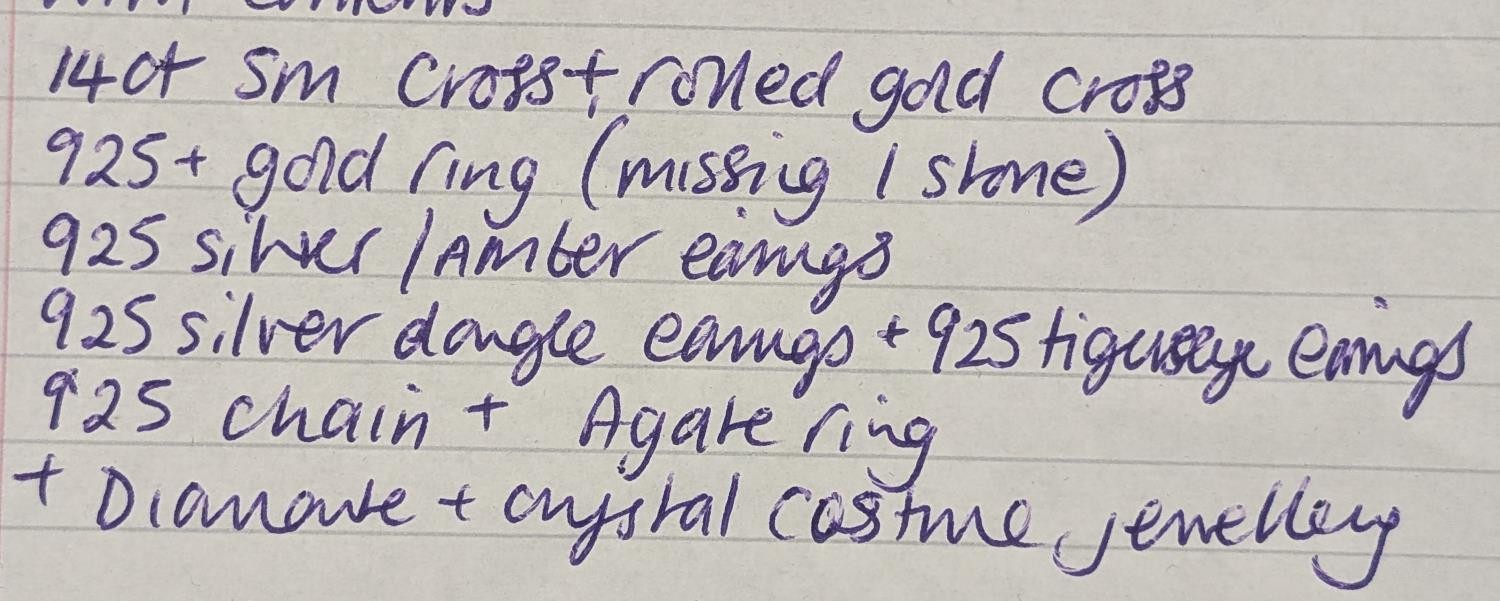 contents
14ct Sm Cross + rolled gold cross
925 + gold ring (missing 1 stone)
925 silver / AMber earings
925 silver dangle earings + 925 tigerseye earings
925 chain + Agate ring
+ Diamante + crystal costume jewellery